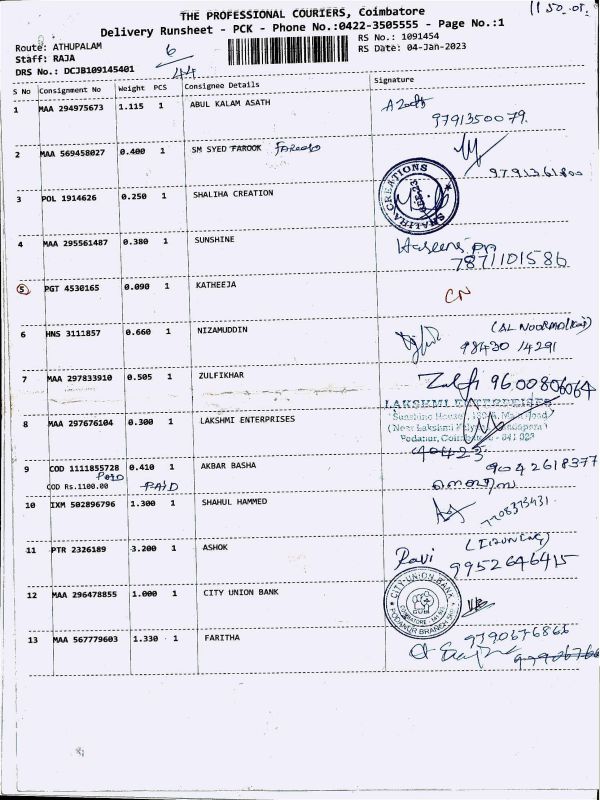 THE PROFESSIONAL COURIERS, Coimbatore
Delivery Runsheet - PCK - Phone No.:0422-3505555 - Page No.:1
Route: ATHUPALAM 6 RS No.: 1091454
Staff: RAJA RS Date: 04-Jan-2023
DRS No.: DCJB109145401 44
S No Consignment No Weight PCS Consignee Details Signature
1 MAA 294975673 1.115 1 ABUL KALAM ASATH
9791350079.
2 MAA 569458027 0.400 1 SM SYED FAROOK
3 POL 1914626 0.250 1 SHALIHA CREATION
4 MAA 295561487 0.380 1 SUNSHINE
7871101586
5 PGT 4530165 0.090 1 KATHEEJA CN
6 HNS 3111857 0.660 1 NIZAMUDDIN
98430 14291
7 MAA 297833910 0.505 1 ZULFIKHAR Zulfi 9600806064
LAKSHMI ENTERPRISES
8 MAA 297676104 0.300 1 LAKSHMI ENTERPRISES
Podanur, Coimbatore - 641 023
9 COD 1111855728 0.410 1 AKBAR BASHA 9042618377
PAID
COD Rs.1100.00 PAID
10 IXM 502896796 1.300 1 SHAHUL HAMMED
11 PTR 2326189 3.200 1 ASHOK Ravi
9952646415
CITY UNION BANK
12 MAA 296478855 1.000 1 CITY UNION BANK
PODANUR BRANCH
13 MAA 567779603 1.330 1 FARITHA 9790676866